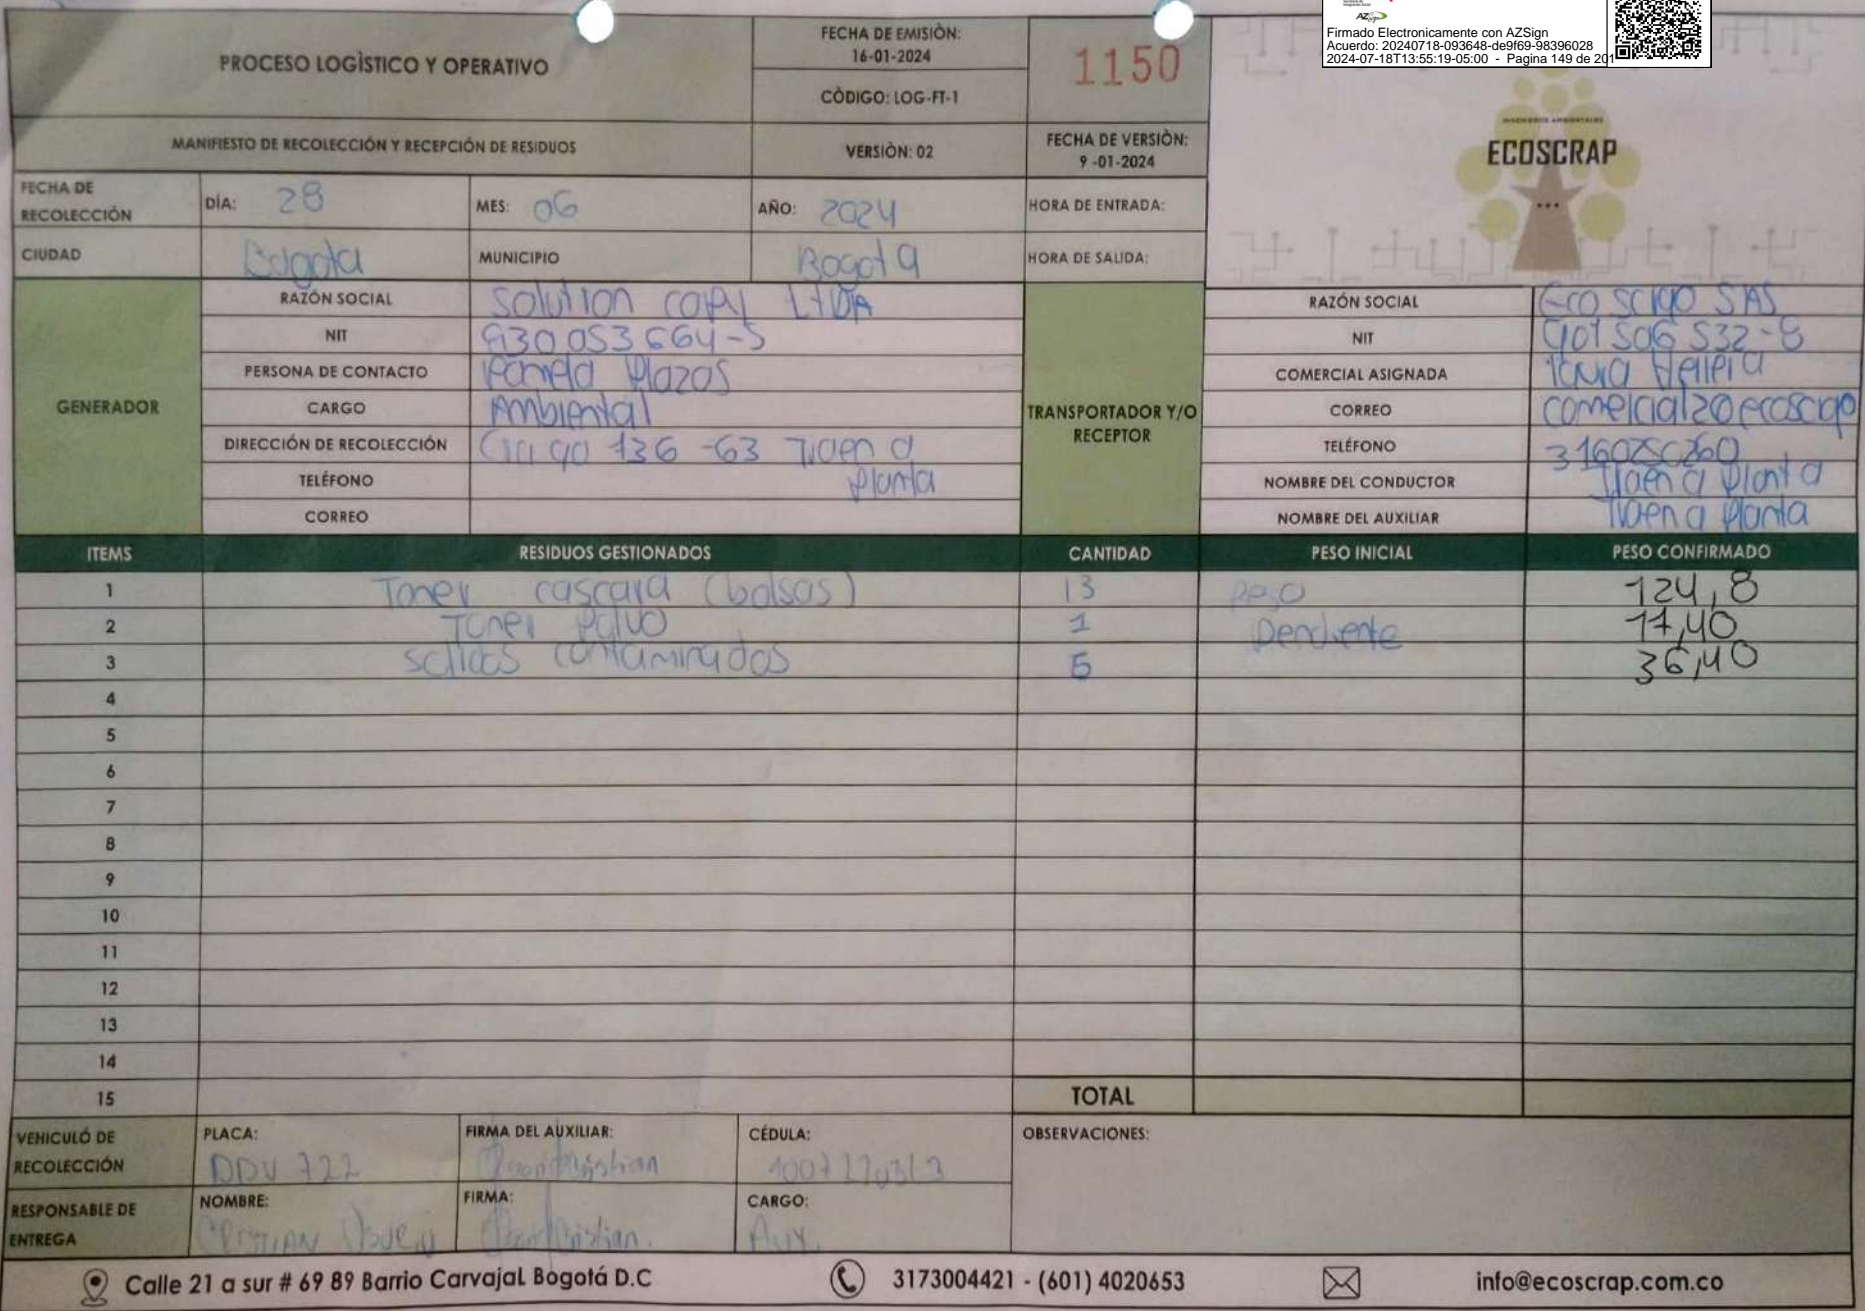 Firmado Electronicamente con AZSign
Acuerdo: 20240718-093648-de9f69-98396028
2024-07-18T13:55:19-05:00 - Pagina 149 de 201
PROCESO LOGÌSTICO Y OPERATIVO
FECHA DE EMISIÒN:
16-01-2024
CÒDIGO: LOG-FT-1
1150
MANIFIESTO DE RECOLECCIÓN Y RECEPCIÓN DE RESIDUOS
VERSIÒN: 02
FECHA DE VERSIÒN:
9 -01-2024
INGENIEROS AMBIENTALES
ECOSCRAP
FECHA DE RECOLECCIÓN
DÍA: 28
MES: 06
AÑO: 2024
HORA DE ENTRADA:
CIUDAD Bogota
MUNICIPIO Bogota
HORA DE SALIDA:
GENERADOR
RAZÓN SOCIAL Solution copy LTDA
NIT 830053664-5
PERSONA DE CONTACTO Pamela Plazas
CARGO Ambiental
DIRECCIÓN DE RECOLECCIÓN 136 -63 Traen a
TELÉFONO Planta
CORREO
TRANSPORTADOR Y/O RECEPTOR
RAZÓN SOCIAL Ecoscrap SAS
NIT 901506532-8
COMERCIAL ASIGNADA
CORREO comercial2@ecoscrap
TELÉFONO 3160250260
NOMBRE DEL CONDUCTOR Traen a Planta
NOMBRE DEL AUXILIAR Traen a Planta
ITEMS RESIDUOS GESTIONADOS CANTIDAD PESO INICIAL PESO CONFIRMADO
1 Toner cascara (bolsas) 13 Peso 124,8
2 Toner Polvo 1 Pendiente 17,40
3 solidos contaminados 5 36,40
4
5
6
7
8
9
10
11
12
13
14
15
TOTAL
VEHICULÓ DE RECOLECCIÓN
PLACA: DDV 722
FIRMA DEL AUXILIAR:
CÉDULA:
OBSERVACIONES:
RESPONSABLE DE ENTREGA
NOMBRE: CRISTIAN
FIRMA:
CARGO: Aux.
Calle 21 a sur # 69 89 Barrio Carvajal Bogotá D.C
3173004421 - (601) 4020653
info@ecoscrap.com.co